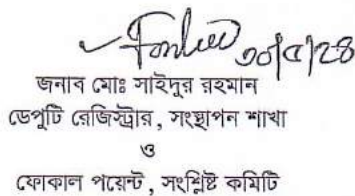 ৩০/৫/২৪
জনাব মোঃ সাইদুর রহমান
ডেপুটি রেজিস্ট্রার, সংস্থাপন শাখা
ও
ফোকাল পয়েন্ট, সংশ্লিষ্ট কমিটি